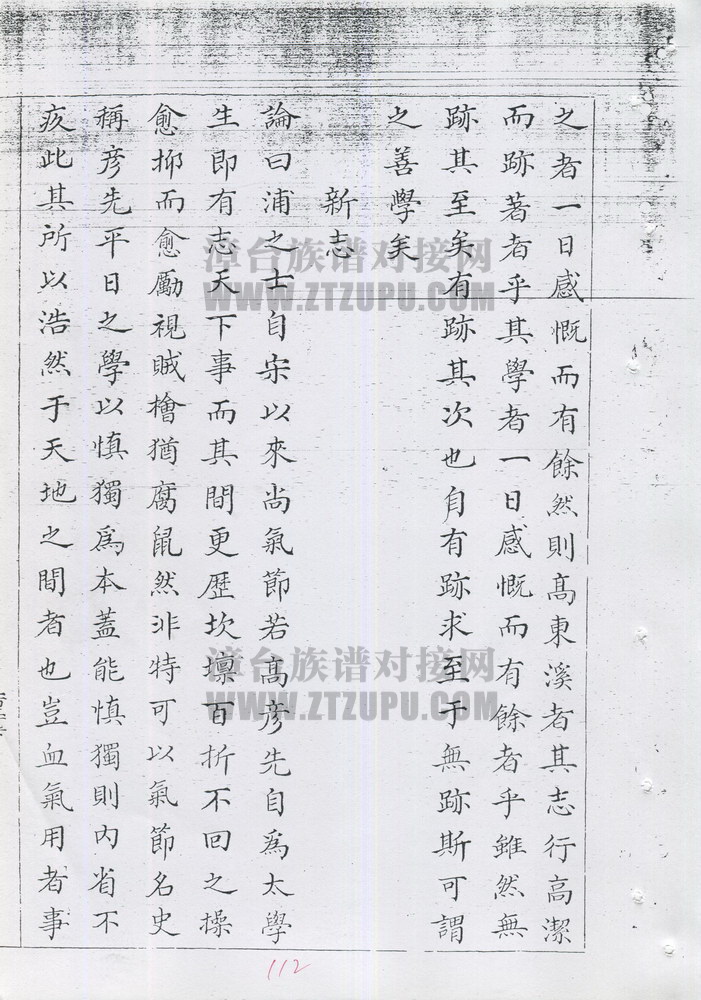 之者一日感慨而有餘然則高東溪者其志行高潔
而跡著者乎其學者一日感慨而有餘者乎雖然無
跡其至矣有跡其次也自有跡求至于無跡斯可謂
之善學矣
新志
論曰浦之士自宋以來尚氣節若高彥先自為太學
生即有志天下事而其間更歷坎壈百折不回之操
愈抑而愈勵視賊檜猶腐鼠然非特可以氣節名史
稱彥先平日之學以慎獨為本蓋能慎獨則內省不
疚此其所以浩然于天地之間者也豈血氣用者事
漳台族谱对接网
WWW.ZTZUPU.COM
漳台族谱对接网
WWW.ZTZUPU.COM
112